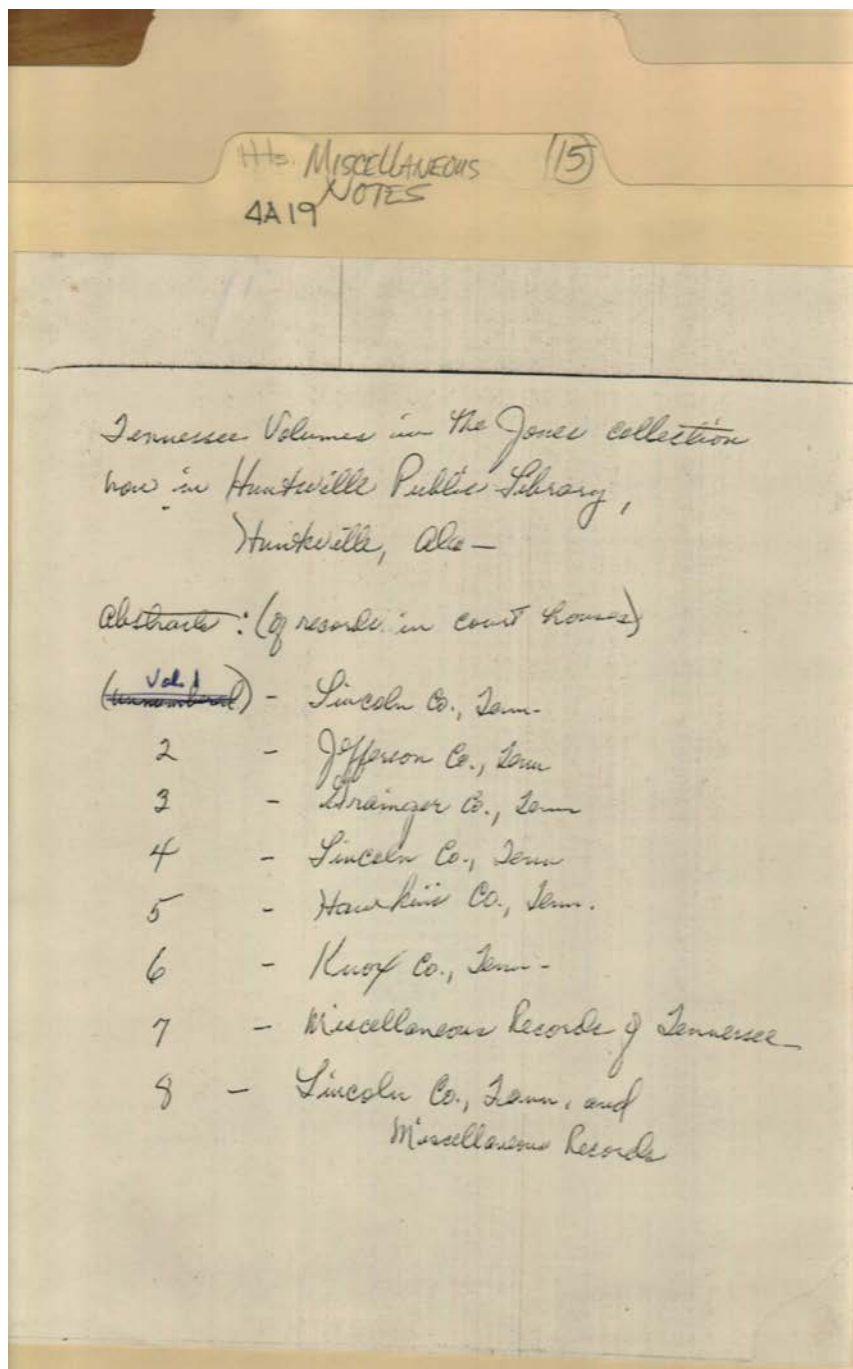 Hts. MISCELLANEOUS (15)
NOTES
4A19
Tennessee Volumes in the Jones collection
now in Huntsville Public Library,
Huntsville, Ala —
Abstracts: (of records in court houses)
Vol. 1
(unnumbered) - Lincoln Co., Tenn.
2 - Jefferson Co., Tenn
3 - Grainger Co., Tenn
4 - Lincoln Co., Tenn
5 - Hawkins Co., Tenn.
6 - Knox Co., Tenn -
7 - Miscellaneous Records of Tennessee
8 - Lincoln Co., Tenn, and
Miscellaneous Records